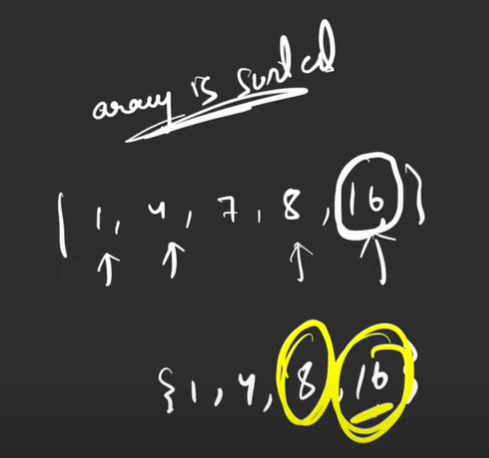 array is sorted
[ 1, 4, 7, 8, 16 ]
{ 1, 4, 8, 16 }